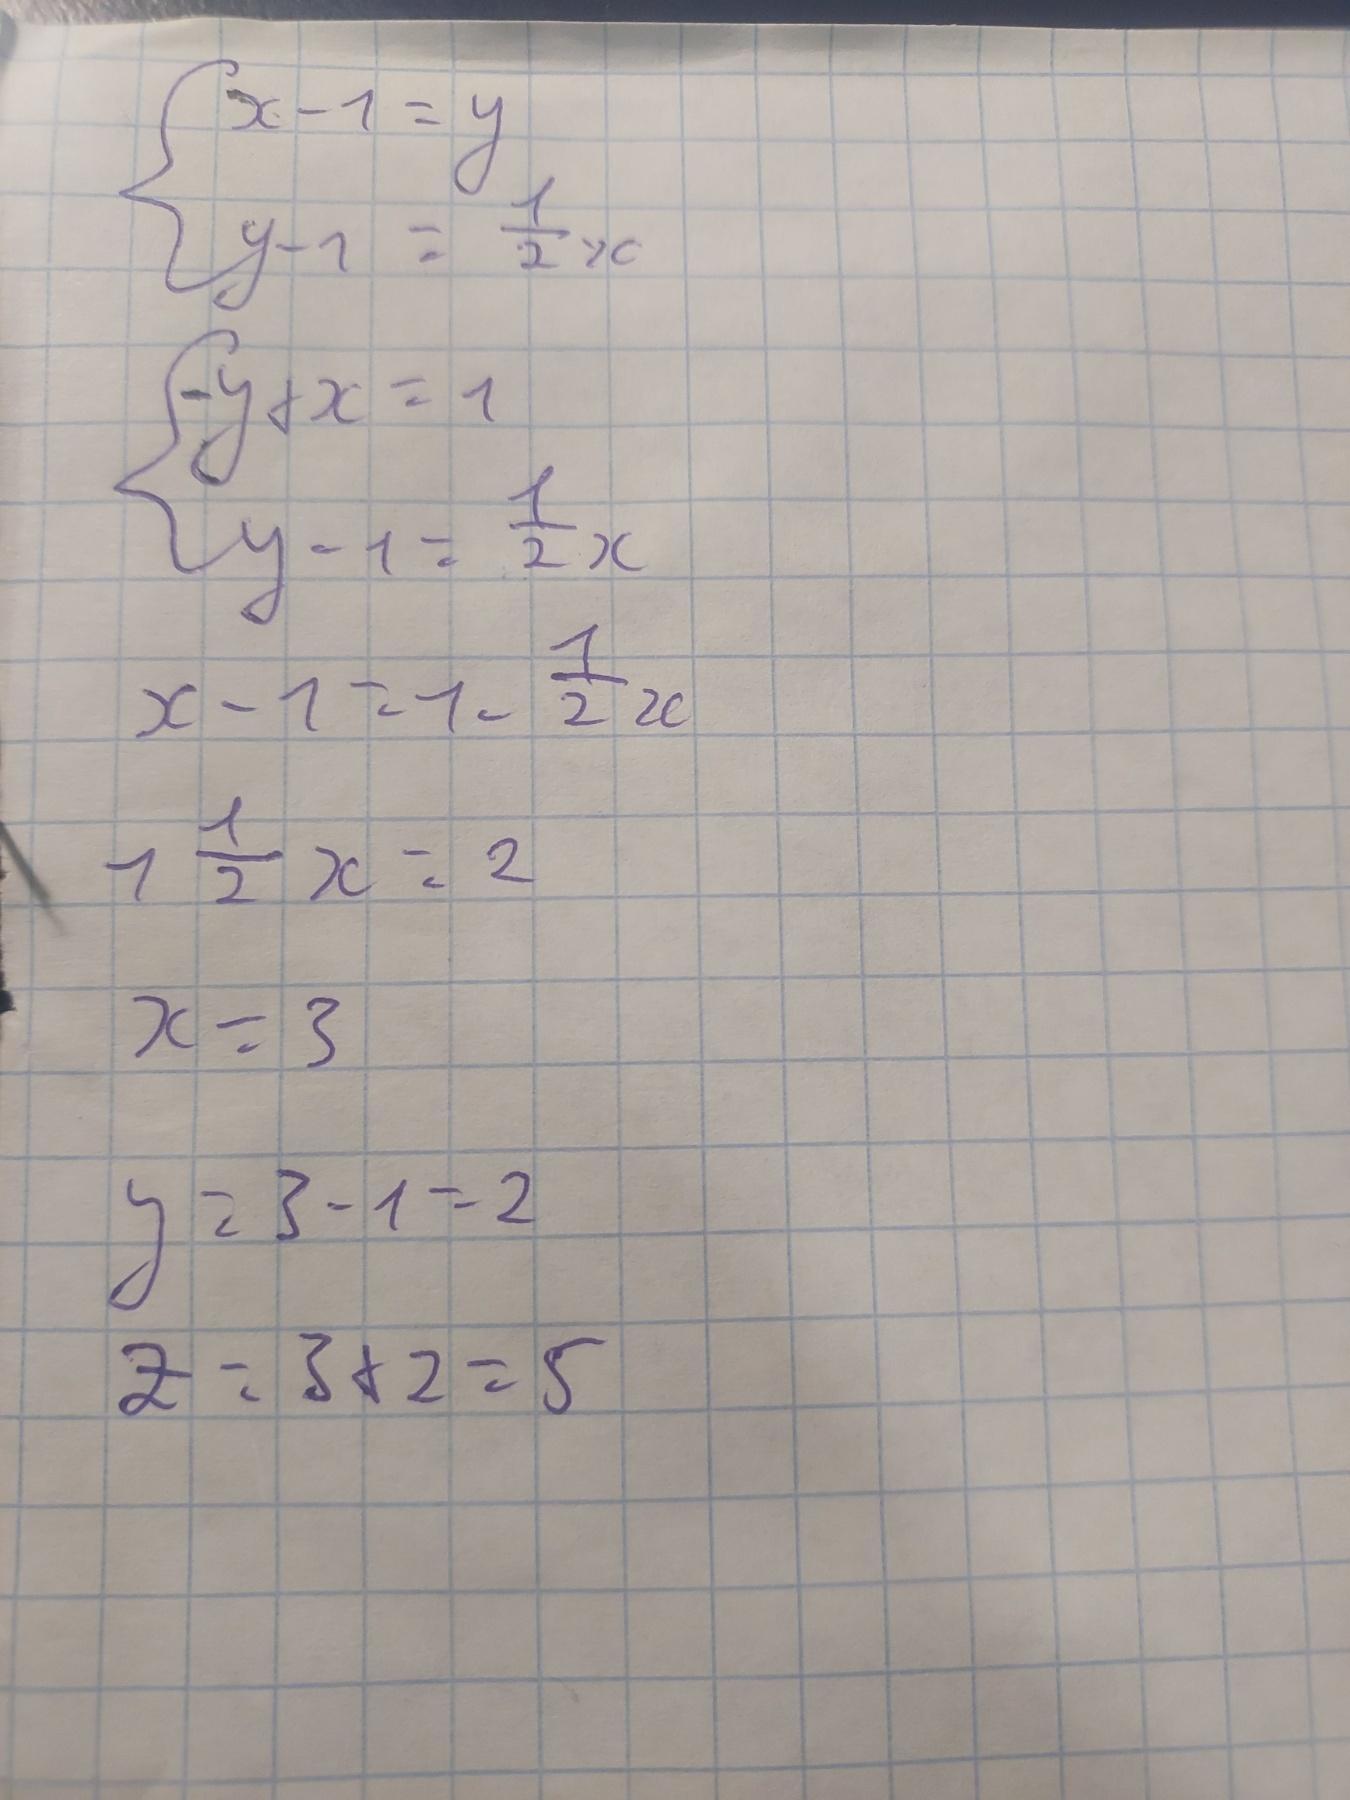 x - 1 = y
y - 1 = 1/2 x
-y + x = 1
y - 1 = 1/2 x
x - 1 = 1 - 1/2 x
1 1/2 x = 2
x = 3
y = 3 - 1 = 2
z = 3 + 2 = 5